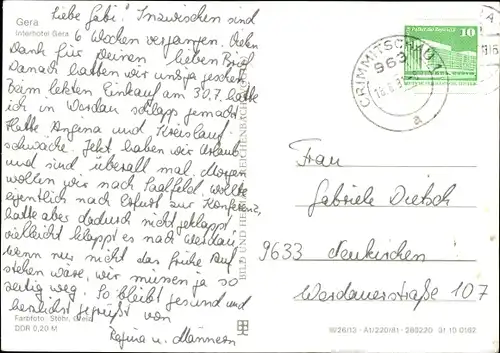 Gera
Interhotel Gera
Liebe Gabi! Inzwischen sind
6 Wochen vergangen. Vielen
Dank für Deinen lieben Brief.
Danach hatten wir uns ja gesehen.
Beim letzten Einkauf am 30.7. hatte
ich in Werdau schlapp gemacht.
Hatte Angina und Kreislauf
schwäche. Jetzt haben wir Urlaub
und sind überall mal. Morgen
wollen wir nach Saalfeld, wollte
eigentlich nach Erfurt zur Konferenz,
hatte aber dadurch nicht geklappt,
vielleicht klappt es nach Werdau,
wenn nur nicht das frühe Auf
stehen wäre, wir müssen ja so
zeitig weg. So bleibt gesund und
herzlichst gegrüßt von
Regina u. Männern
Farbfoto: Stöhr, Greiz
DDR 0,20 M
BILD UND HEIMAT REICHENBACH
10
CRIMMITSCHAU 1
963
a
Frau
Gabriele Dietsch
9633 Neukirchen
Werdauerstraße 107
III/26/13 · A1/220/81 · 268220 31 10 0162